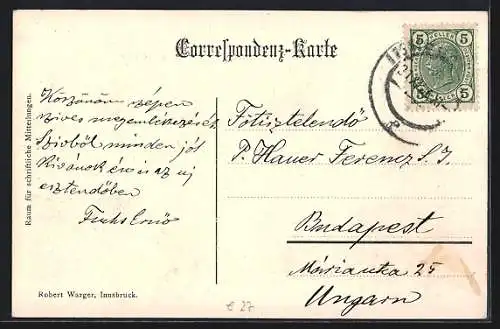 Correspondenz-Karte
5 HELLER 5
5 5
Raum für schriftliche Mitteilungen.
Köszönöm szépen
szives megemlékezését
Szivből minden jót
Kivánok én is az uj
esztendőben
Fuchs Ernő
Főtisztelendő
P. Hauer Ferencz S. J.
Budapest
Mária utca 25
Ungarn
Robert Warger, Innsbruck.
e 27